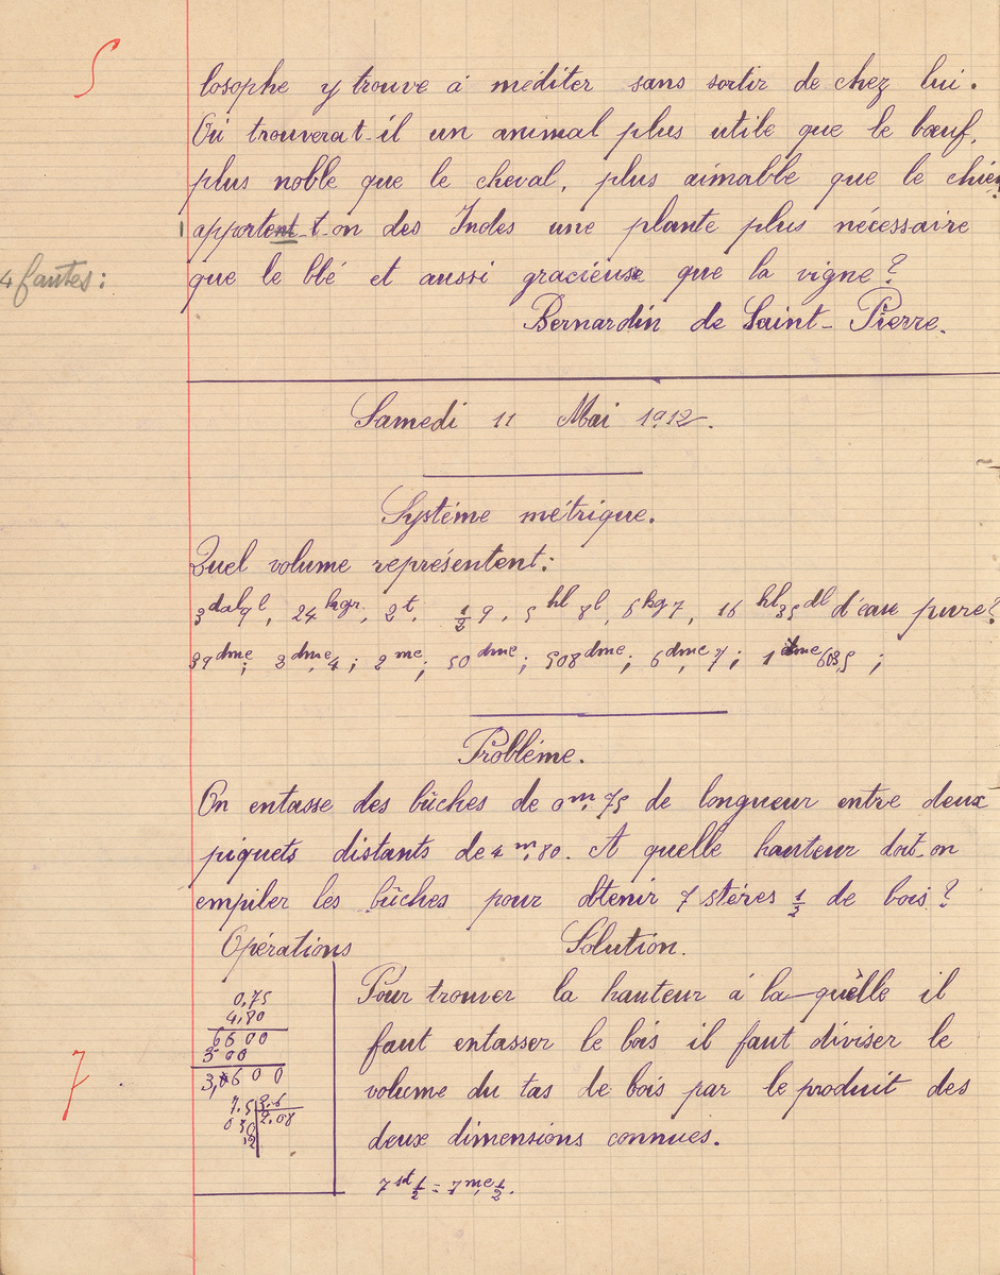 5
losophe y trouve à méditer sans sortir de chez lui.
Où trouvera t-il un animal plus utile que le bœuf,
plus noble que le cheval, plus aimable que le chien
apportent-t-on des Indes une plante plus nécessaire
4 fautes :
que le blé et aussi gracieuse que la vigne ?
Bernardin de Saint-Pierre.
Samedi 11 Mai 1912.
Système métrique.
Quel volume représentent :
3 dal 9 l, 24 kgr, 2 t. 1/2 q, 5 hl 8 l, 6 kg 7, 16 hl 35 dl d'eau pure ?
39 dmc ; 3 dmc, 4 ; 2 mc ; 50 dmc ; 508 dmc ; 6 dmc 7 ; 1 mc 6035 ;
Problème.
On entasse des bûches de 0 m, 75 de longueur entre deux
piquets distants de 4 m, 80. A quelle hauteur doit-on
empiler les bûches pour obtenir 7 stères 1/2 de bois ?
Opérations Solution.
0,75
4,80
6600
300
3,6600
7,5 3,6
030 2.08
12
7
Pour trouver la hauteur à la quèlle il
faut entasser le bois il faut diviser le
volume du tas de bois par le produit des
deux dimensions connues.
7 st 1/2 = 7 mc 1/2.